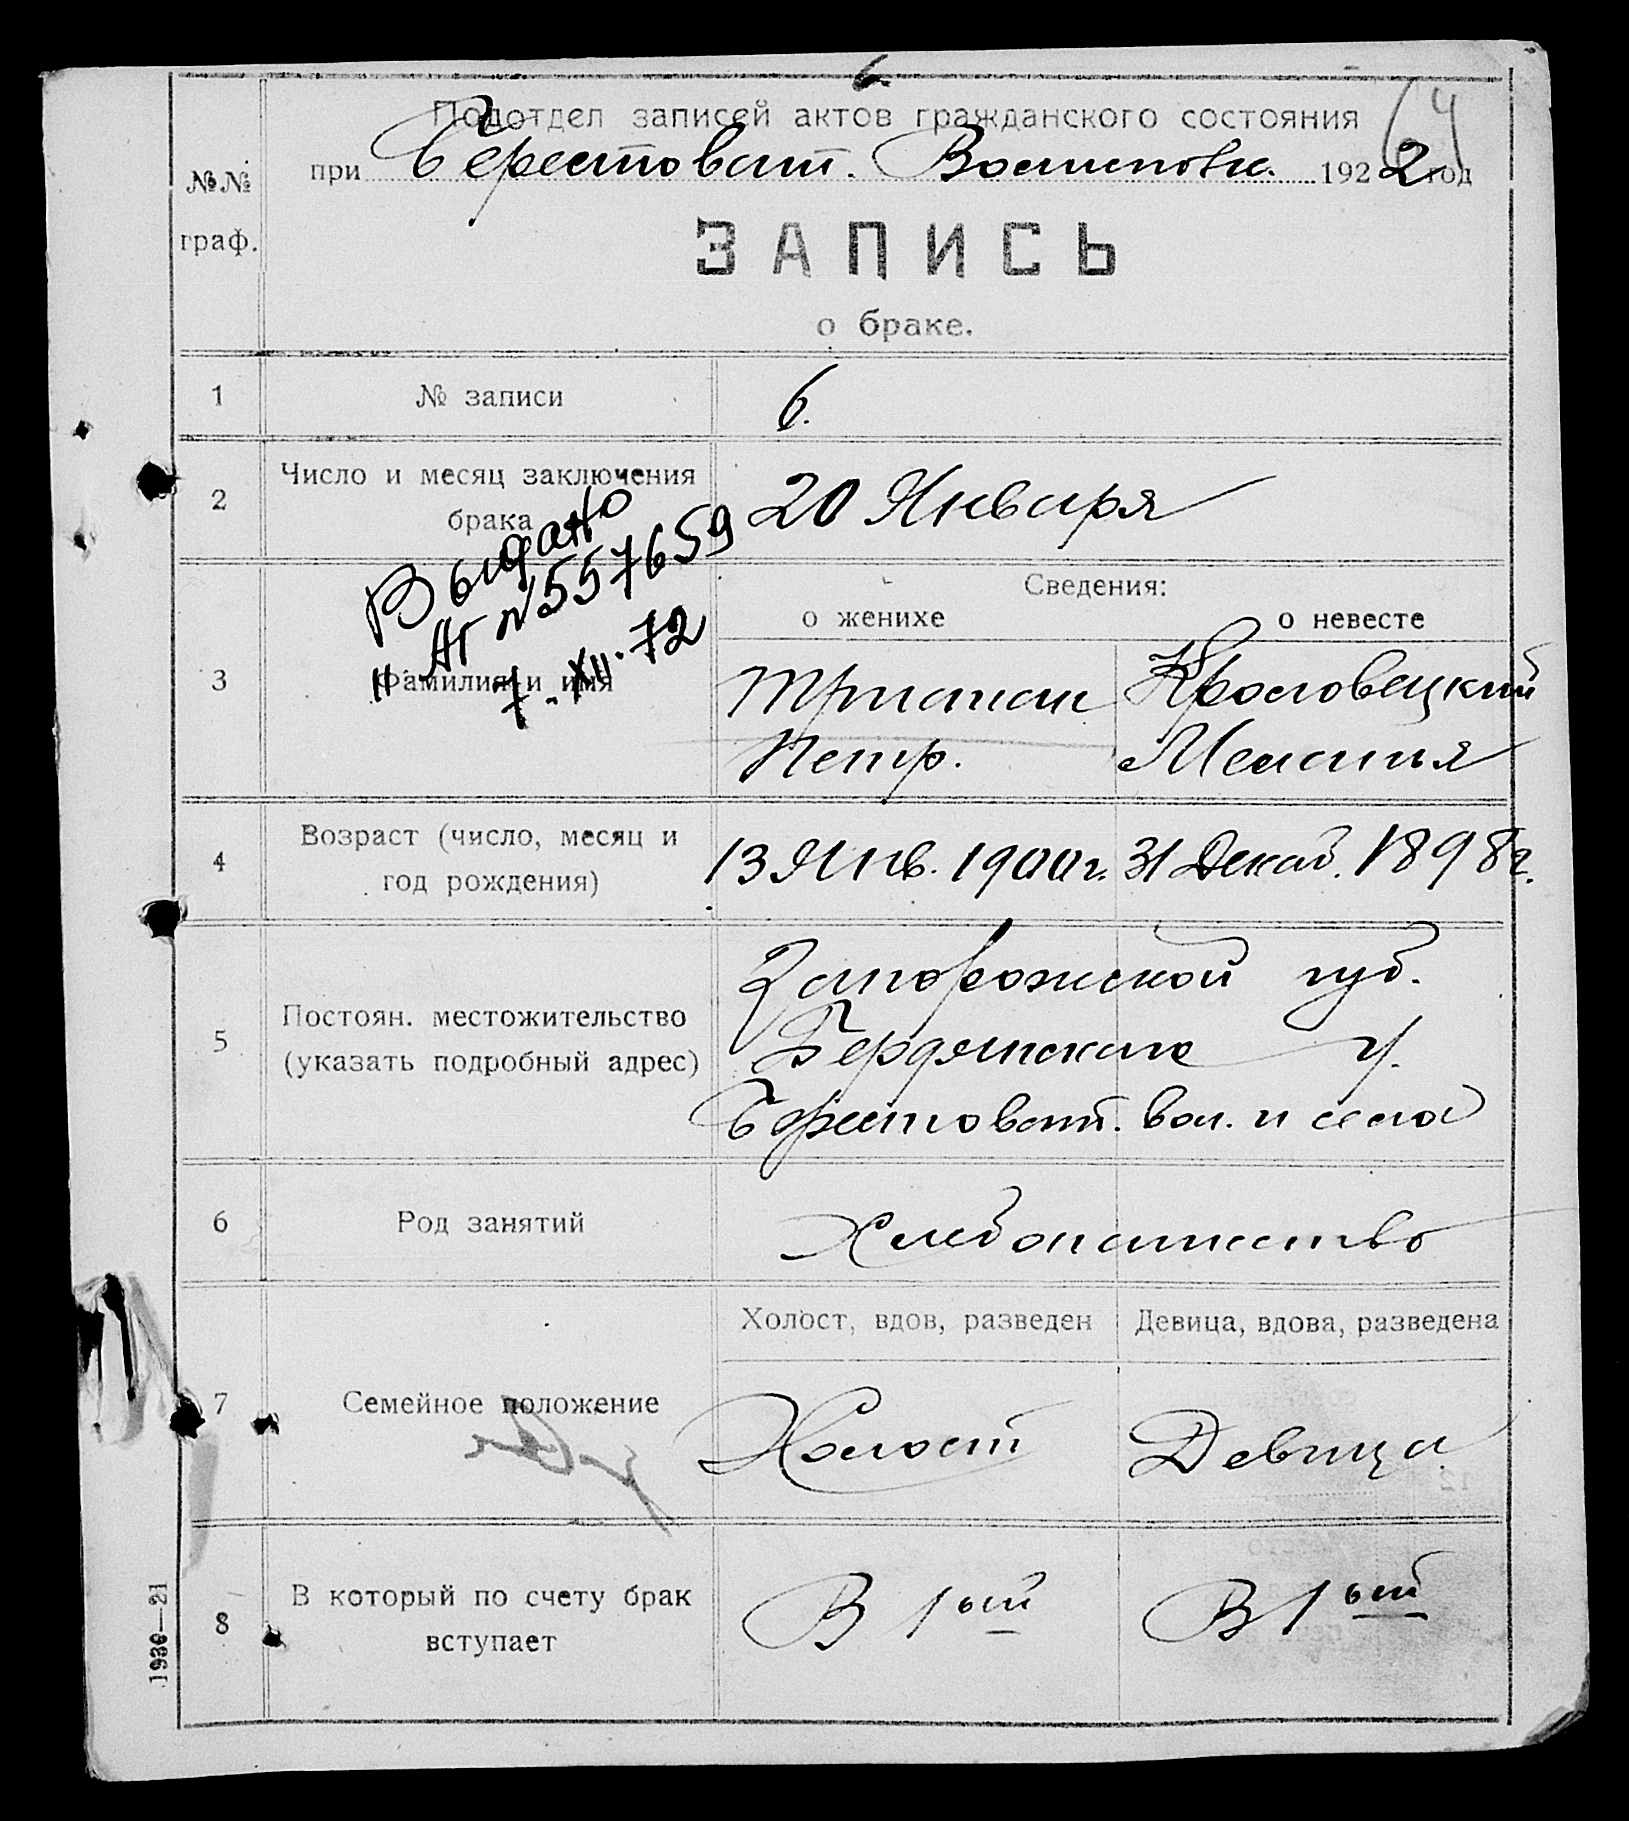 6.
64
Подотдел записей актов гражданского состояния
при Берестоват. Волисполк. 1922 год
№№ граф.
ЗАПИСЬ
о браке.
1 № записи 6.
2 Число и месяц заключения брака 20 Января
Выдано
II АГ №557659
7.XII.72
Сведения:
о женихе о невесте
3 Фамилия и имя
Петр. Мелания
4 Возраст (число, месяц и год рождения) 13 Янв. 1900 г. 31 Декаб. 1898 г.
5 Постоян. местожительство (указать подробный адрес)
Запорожской губ.
Бердянского у.
Берестоват. вол. и села
6 Род занятий Хлебопашество
Холост, вдов, разведен Девица, вдова, разведена
7 Семейное положение Холост Девица
8 В который по счету брак вступает В 1ый В 1ый
1936—21